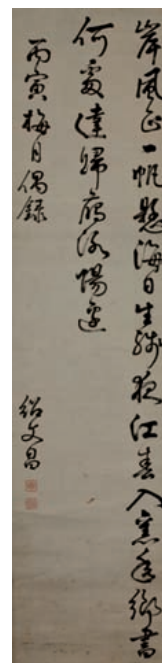 岸風正一帆懸海日生殘夜江春入舊年鄉書
何處達歸雁洛陽邊
丙寅梅月偶錄
紹文昌